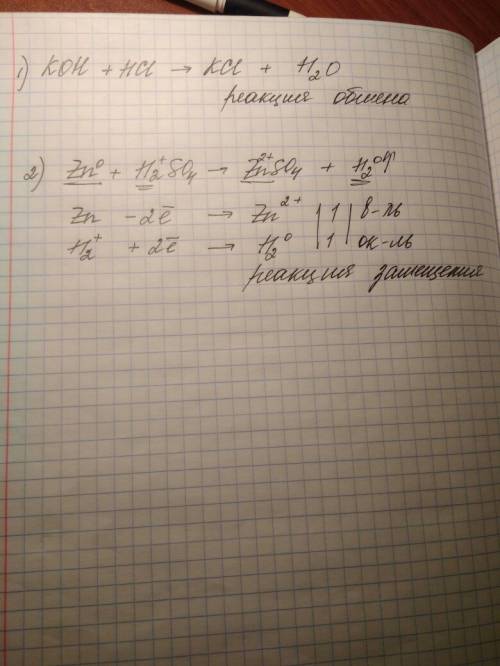 1) KOH + HCl → KCl + H₂O
реакция обмена
2) Zn⁰ + H₂⁺SO₄ → Zn²⁺SO₄ + H₂⁰↑
Zn - 2ē → Zn²⁺ | 1 | в-ль
H₂⁺ + 2ē → H₂⁰ | 1 | ок-ль
реакция замещения